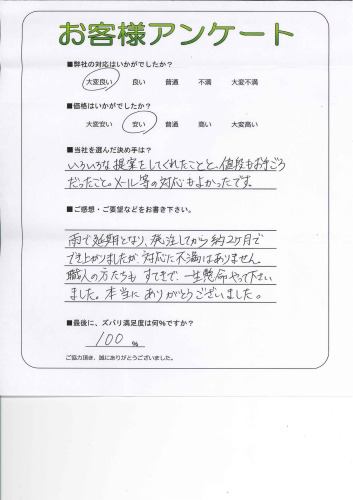 お客様アンケート
■弊社の対応はいかがでしたか？
大変良い 良い 普通 不満 大変不満
■価格はいかがでしたか？
大変安い 安い 普通 高い 大変高い
■当社を選んだ決め手は？
いろいろな提案をしてくれたことと、値段もお手ごろ
だったこと。メール等の対応もよかったです。
■ご感想・ご要望などをお書き下さい。
雨で延期となり、発注してから約2ヶ月で
でき上がりましたが、対応に不満はありません。
職人の方たちも すてきで、一生懸命やって下さい
ました。本当に ありがとうございました。
■最後に、ズバリ満足度は何%ですか？
100 %
ご協力頂き、誠にありがとうございました。